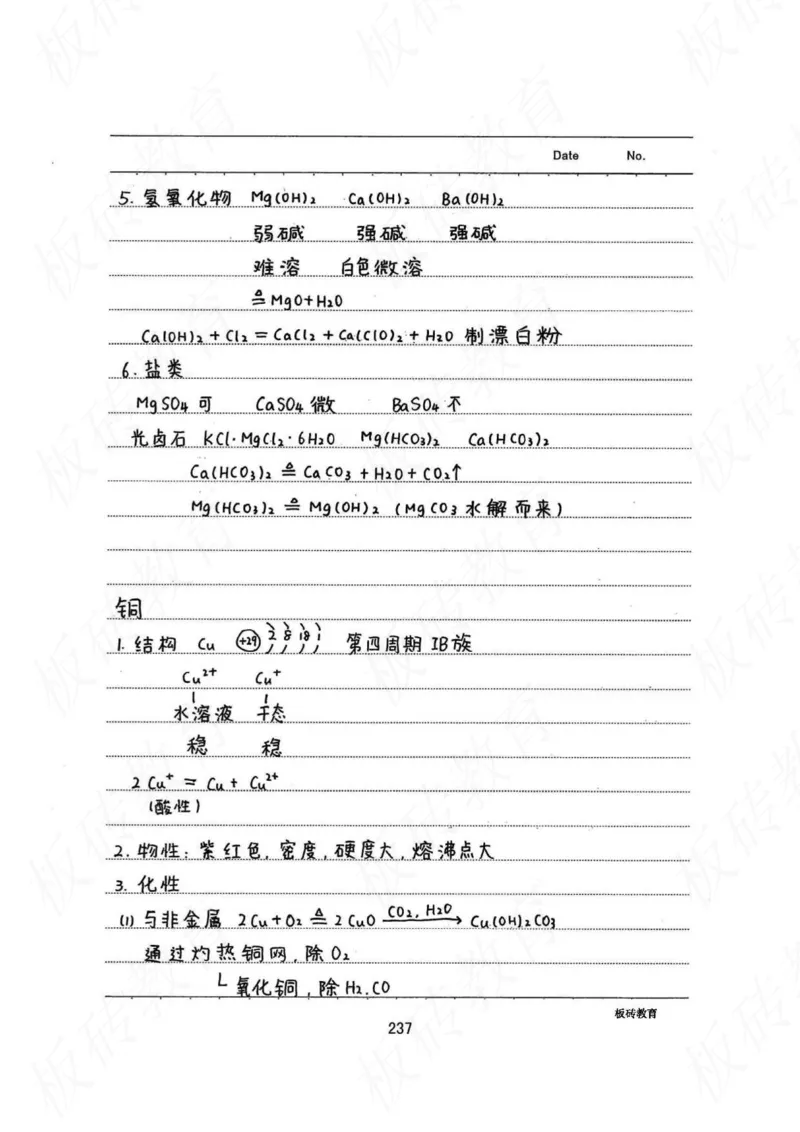 Date No.
5. 氢氧化物 Mg(OH)₂ Ca(OH)₂ Ba(OH)₂
弱碱 强碱 强碱
难溶 白色微溶
≜ MgO+H₂O
Ca(OH)₂ + Cl₂ = CaCl₂ + Ca(ClO)₂ + H₂O 制漂白粉
6. 盐类
MgSO₄ 可 CaSO₄ 微 BaSO₄ 不
光卤石 KCl·MgCl₂·6H₂O Mg(HCO₃)₂ Ca(HCO₃)₂
Ca(HCO₃)₂ ≜ CaCO₃ + H₂O + CO₂↑
Mg(HCO₃)₂ ≜ Mg(OH)₂ (MgCO₃ 水解而来)
铜
1. 结构 Cu +29 2 8 18 1 第四周期 IB族
Cu²⁺ Cu⁺
水溶液 干态
稳 稳
2Cu⁺ = Cu + Cu²⁺
(酸性)
2. 物性: 紫红色, 密度, 硬度大, 熔沸点大
3. 化性
(1) 与非金属 2Cu+O₂ ≜ 2CuO CO₂, H₂O → Cu(OH)₂CO₃
通过灼热铜网, 除O₂
氧化铜, 除H₂.CO
板砖教育
237